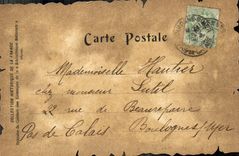 Carte Postale
Mademoiselle Hautier
chez monsieur Sutil
2 rue de Beaurepaire
Pas de Calais Boulogne s/mer
COLLECTION HISTORIQUE DE LA FRANCE